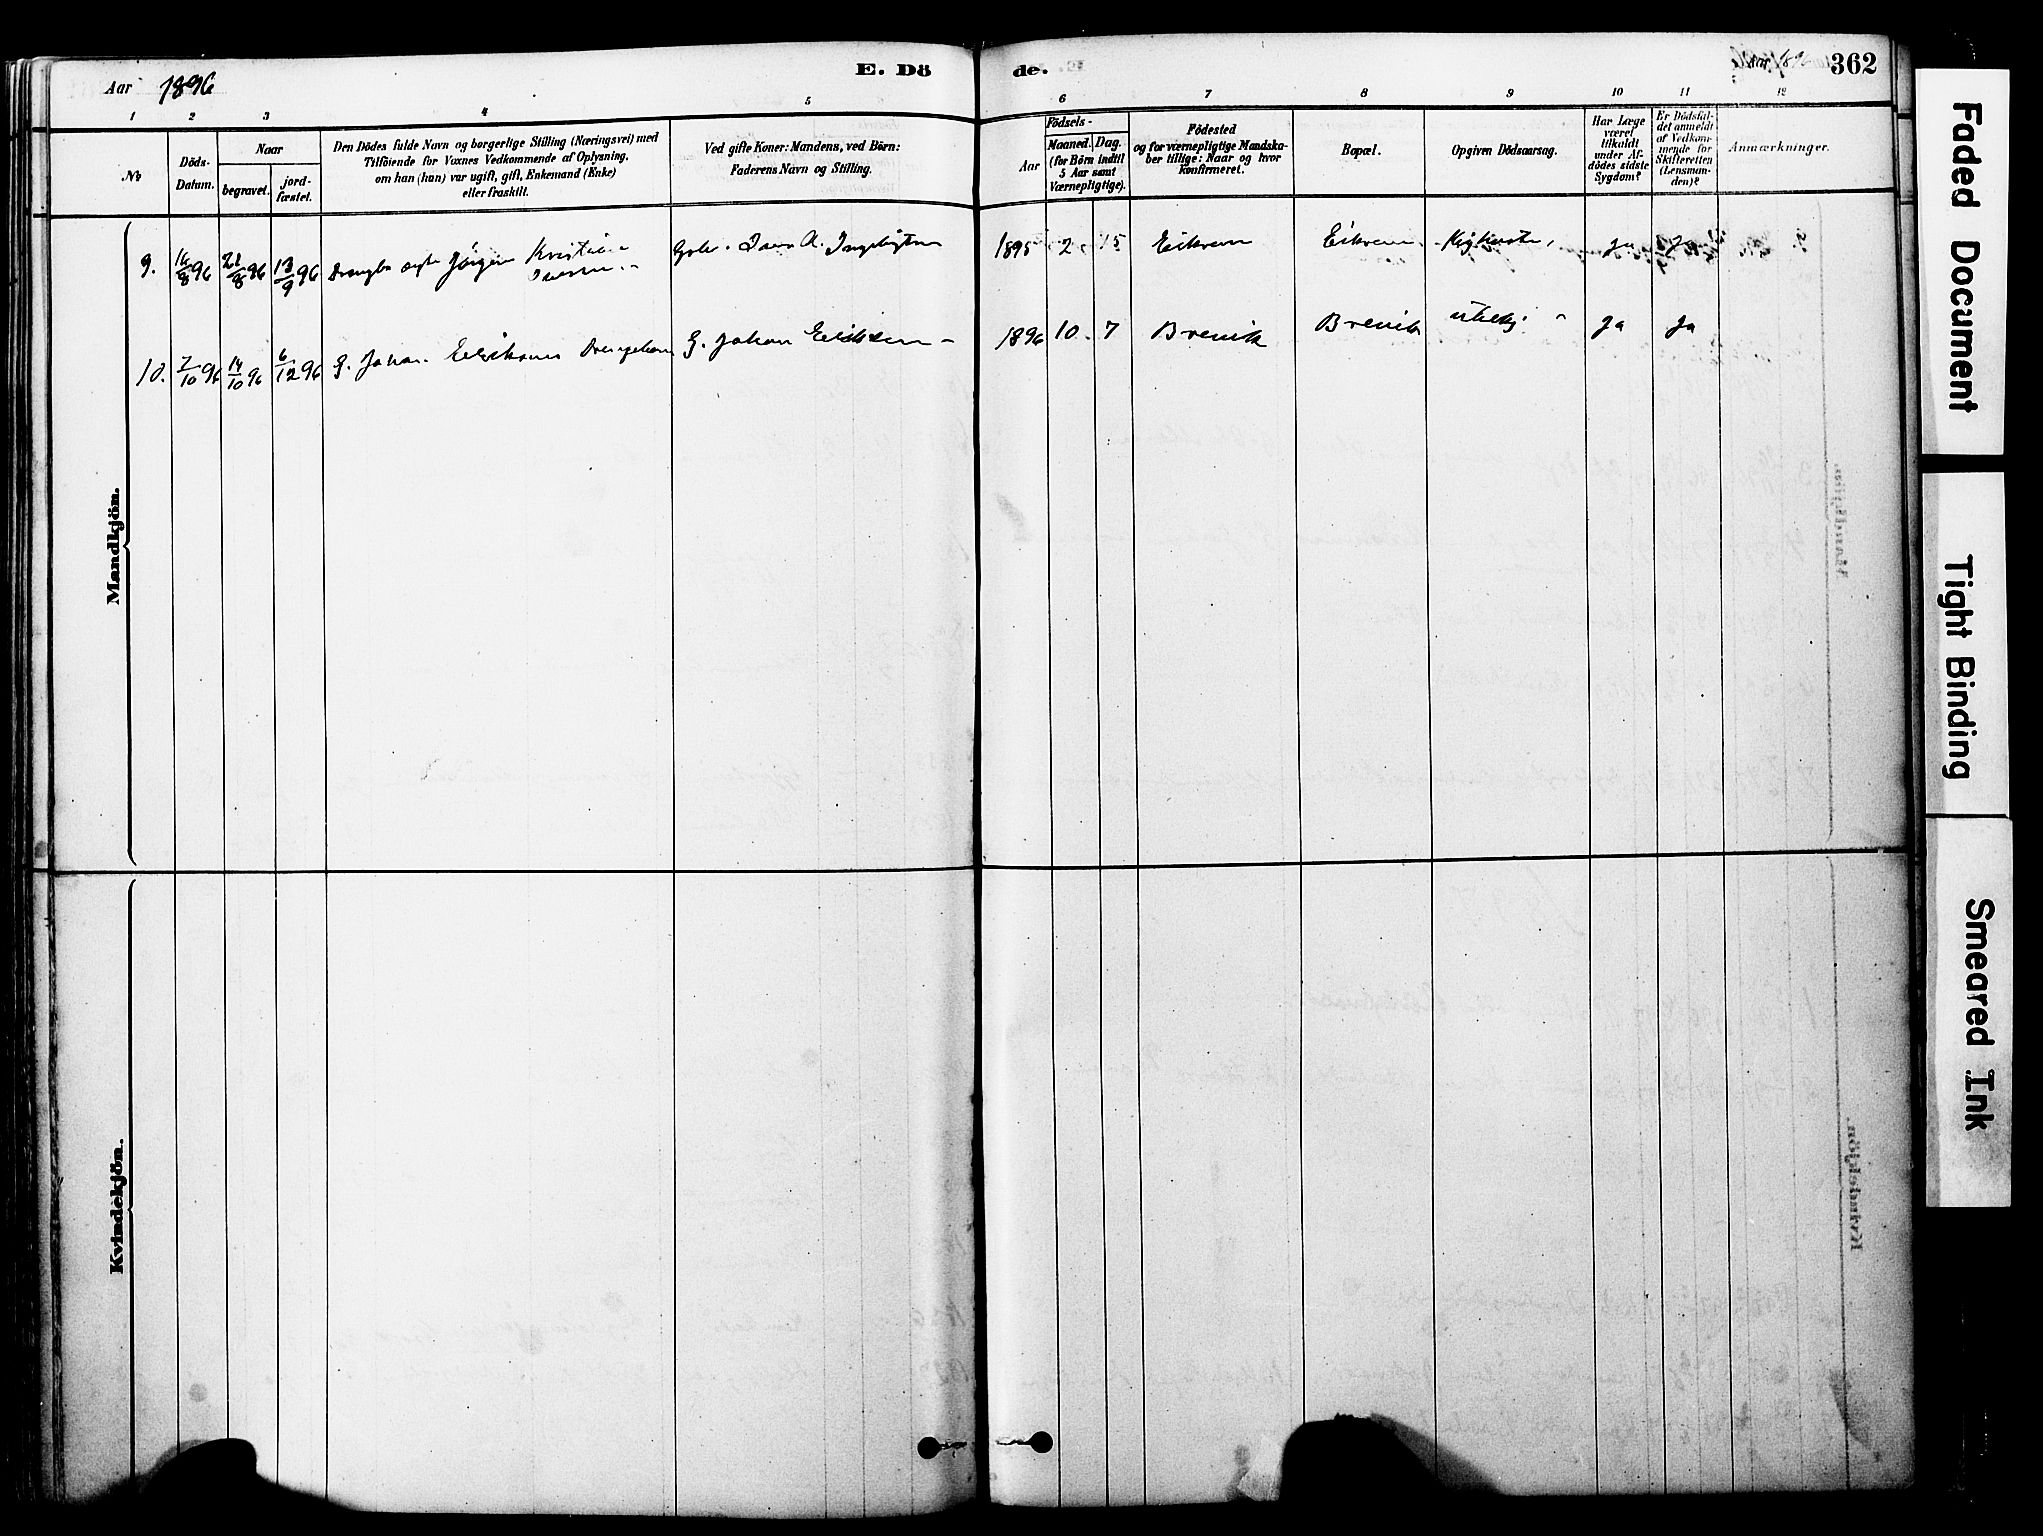 Aar 1896
E. Dö
de.
362
1 2 3 4 5 6 7 8 9 10 11 12
No
Döds-
Datum.
Naar
begravet.
jord-
fæstet.
Den Dödes fulde Navn og borgerlige Stilling (Næringsvei) med
Tilföiende for Voxnes Vedkommende af Oplysning,
om han (hun) var ugift, gift, Enkemand (Enke)
eller fraskilt.
Ved gifte Koner: Mandens, ved Börn:
Faderens Navn og Stilling.
Födsels-
Aar
Maaned.
Dag.
(for Börn indtil
5 Aar samt
Værnepligtige).
Födested
og for værnepligtige Mandska-
ber tillige: Naar og hvor
konfirmeret.
Bopæl.
Opgiven Dödsaarsag.
Har Læge
været
tilkaldt
under Af-
dödes sidste
Sygdom?
Er Dödsfal-
det anmeldt
af Vedkom-
mende for
Skifteretten
(Lensman-
den)?
Anmærkninger.
Mandkjön.
9. 16/8 96 21/8 96 13/9 96 Jörgen Kristian Iversen A. Ingebrigtsen 1895 2 15 Eikrem Eikrem Kighoste, ja ja
10. 7/10 96 14/10 96 6/12 96 G. Johan Eriksens Drengebarn G. Johan Eriksen 1896 10. 7 Brevik Brevik ubekj. ja ja
Kvindekjön.
Faded Document
Tight Binding
Smeared Ink